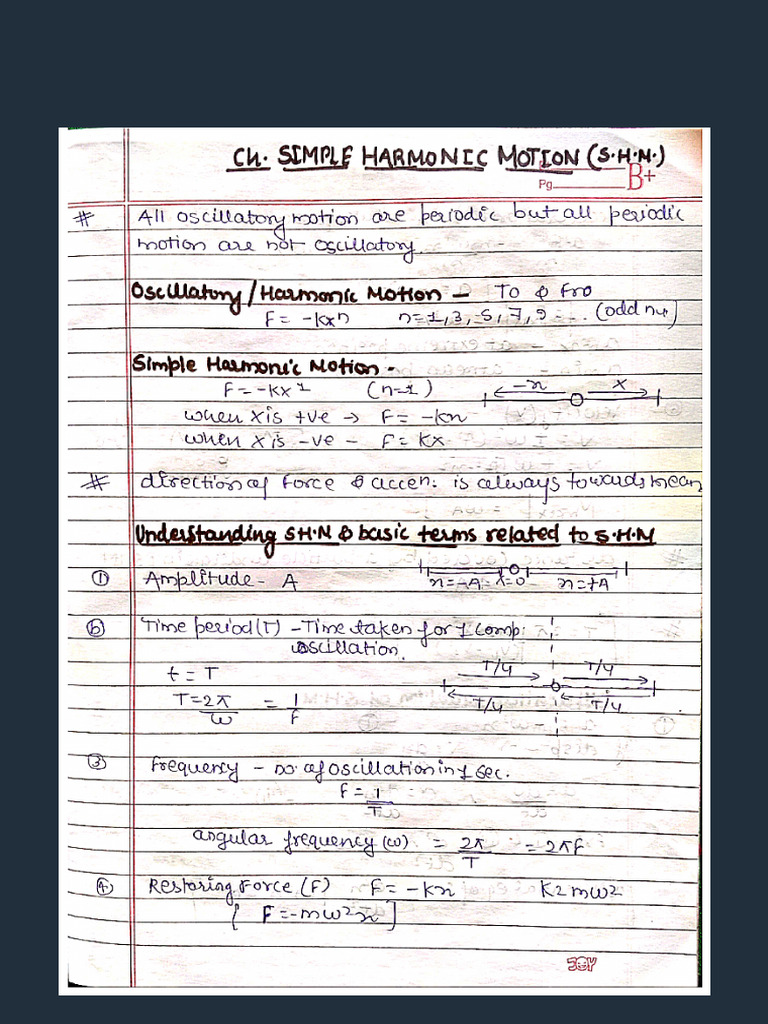 Ch. SIMPLE HARMONIC MOTION (S.H.M.)
Pg. B+
# All oscillatory motion are periodic but all periodic
motion are not oscillatory.
Oscillatory/Harmonic Motion - To & Fro
F = -Kxⁿ n=1,3,5,7,9 - - . (odd no.)
Simple Harmonic Motion -
F = -Kx¹ (n=1) -x x
when x is +ve → F = -Kx
when x is -ve - F = Kx
# direction of force & accen: is always towards mean
Understanding S.H.M & basic terms related to S.H.M
① Amplitude - A x=-A x=0 x=+A
② Time period (T) - Time taken for 1 comp.
oscillation.
t = T T/4 T/4
T = 2π/ω = 1/F T/4 T/4
③ frequency - no. of oscillation in 1 sec.
F = 1/T
angular frequency (ω) = 2π/T = 2πF
④ Restoring Force (F) F = -Kx K = mω²
[ F = -mω²x ]
JOY